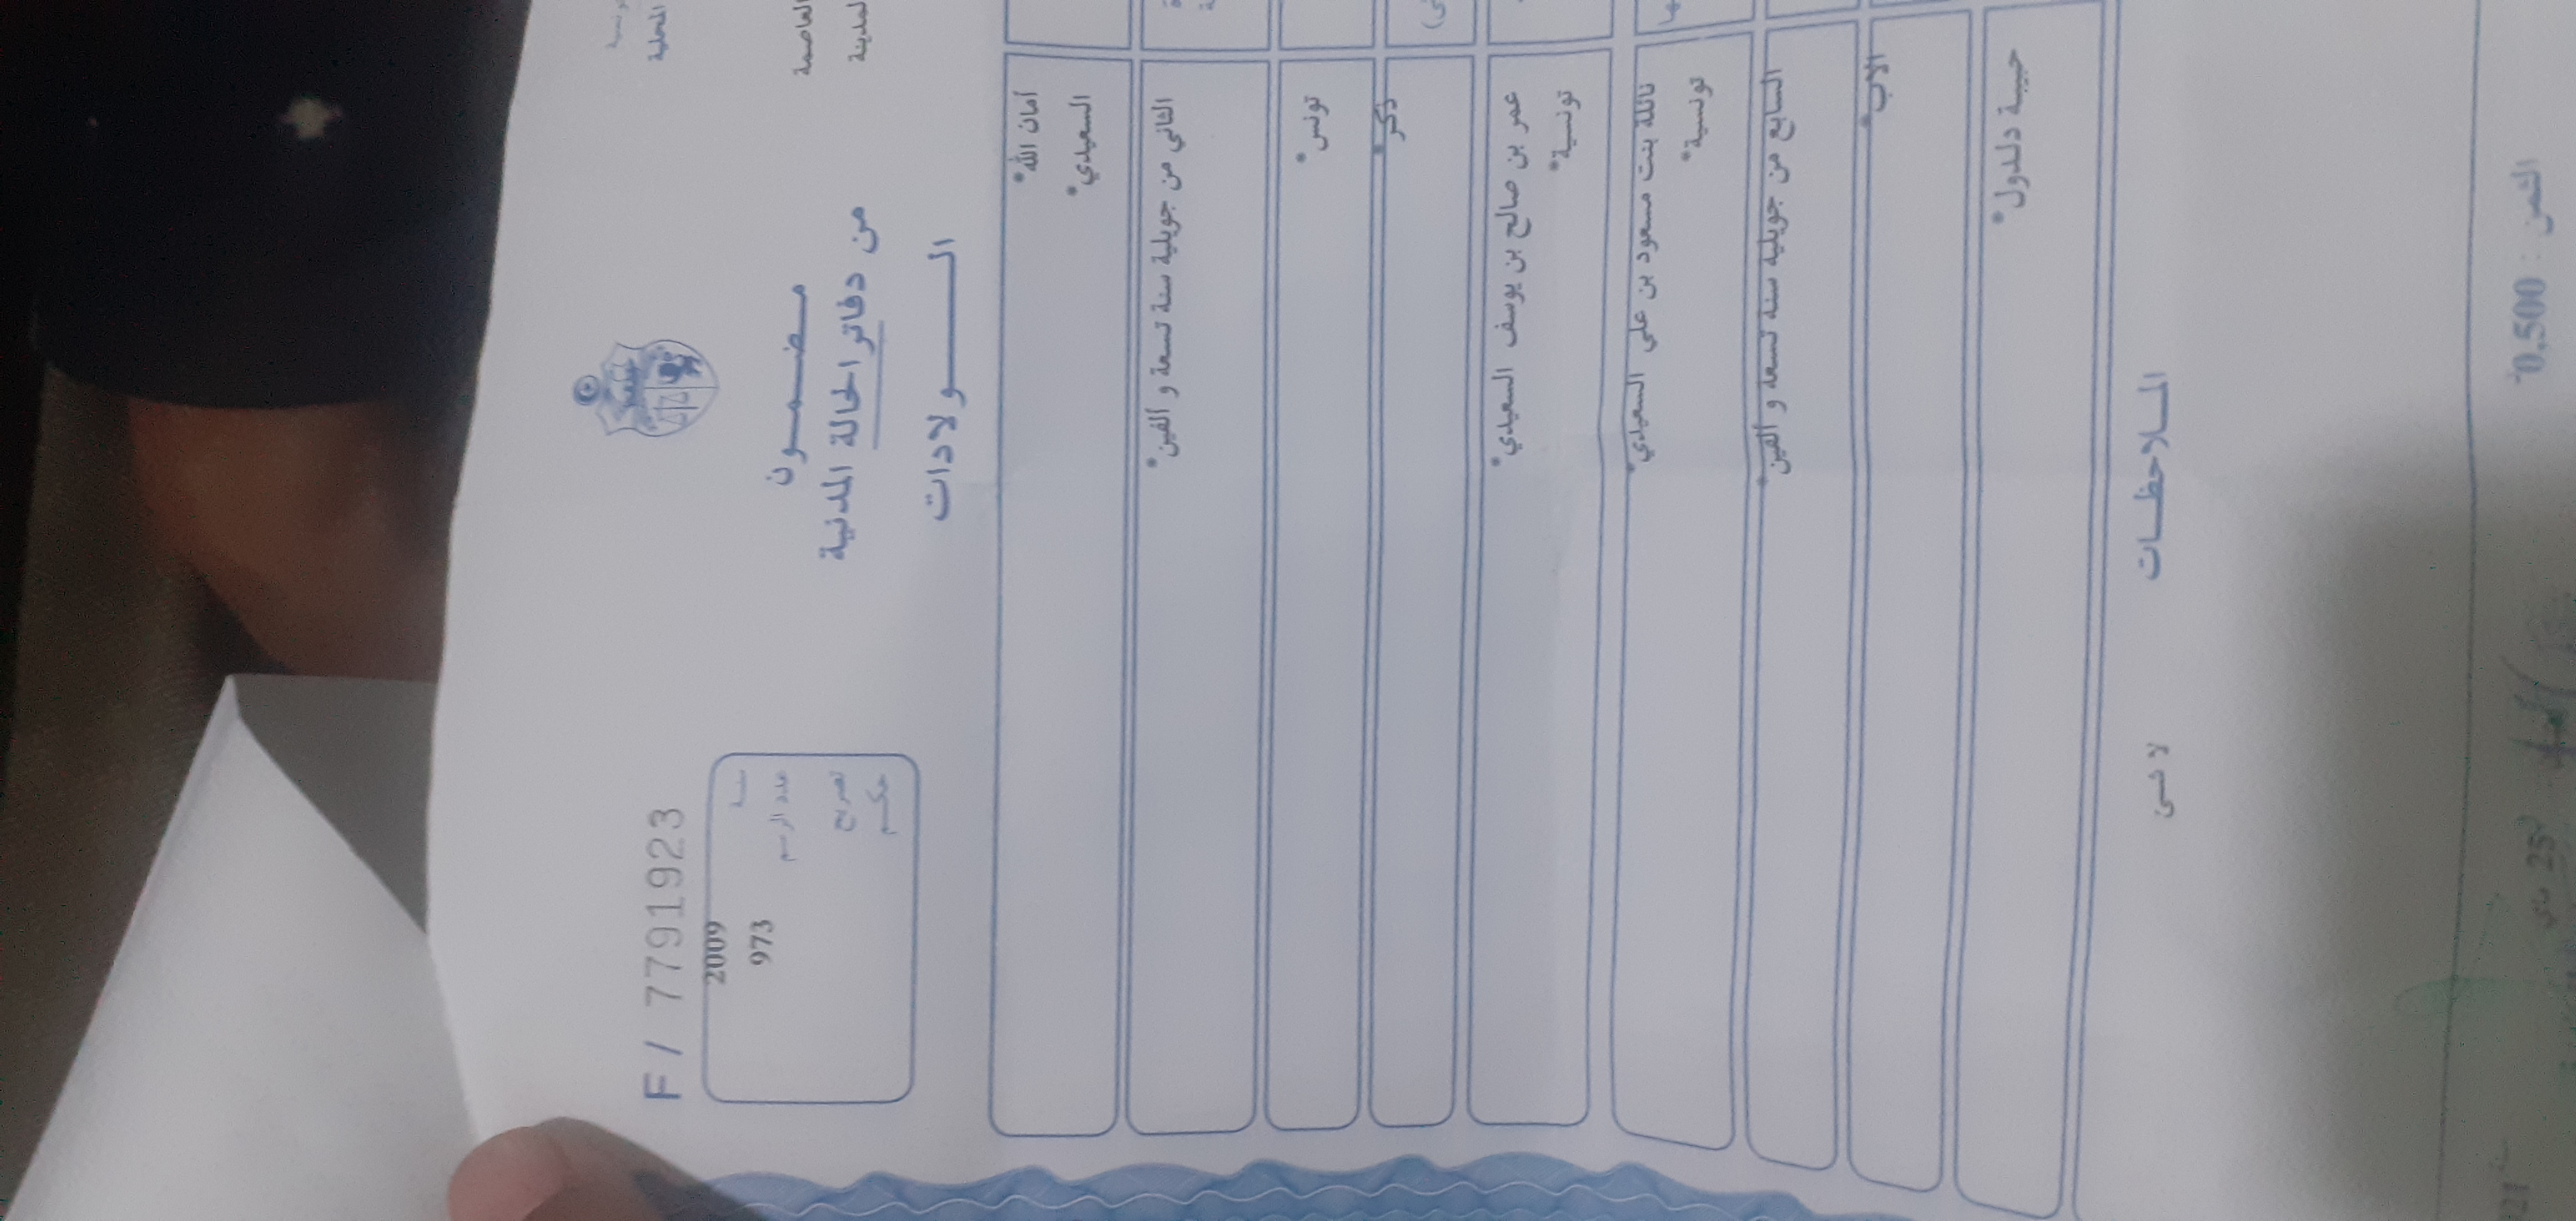 المحلية
العاصمة
المدينة
F / 7791923
سنة 2009
عدد الرسم 973
تصريح
حكم
مضمون
من دفاتر الحالة المدنية
الولادات
أمان الله*
السعيدي*
الثاني من جويلية سنة تسعة و ألفين*
تونس*
ذكر*
عمر بن صالح بن يوسف السعيدي*
تونسية*
نائلة بنت مسعود بن علي السعيدي*
تونسية*
السابع من جويلية سنة تسعة و ألفين*
الأب*
حبيبة دلدول*
الملاحظات
لا شيء
الثمن : 0,500
25